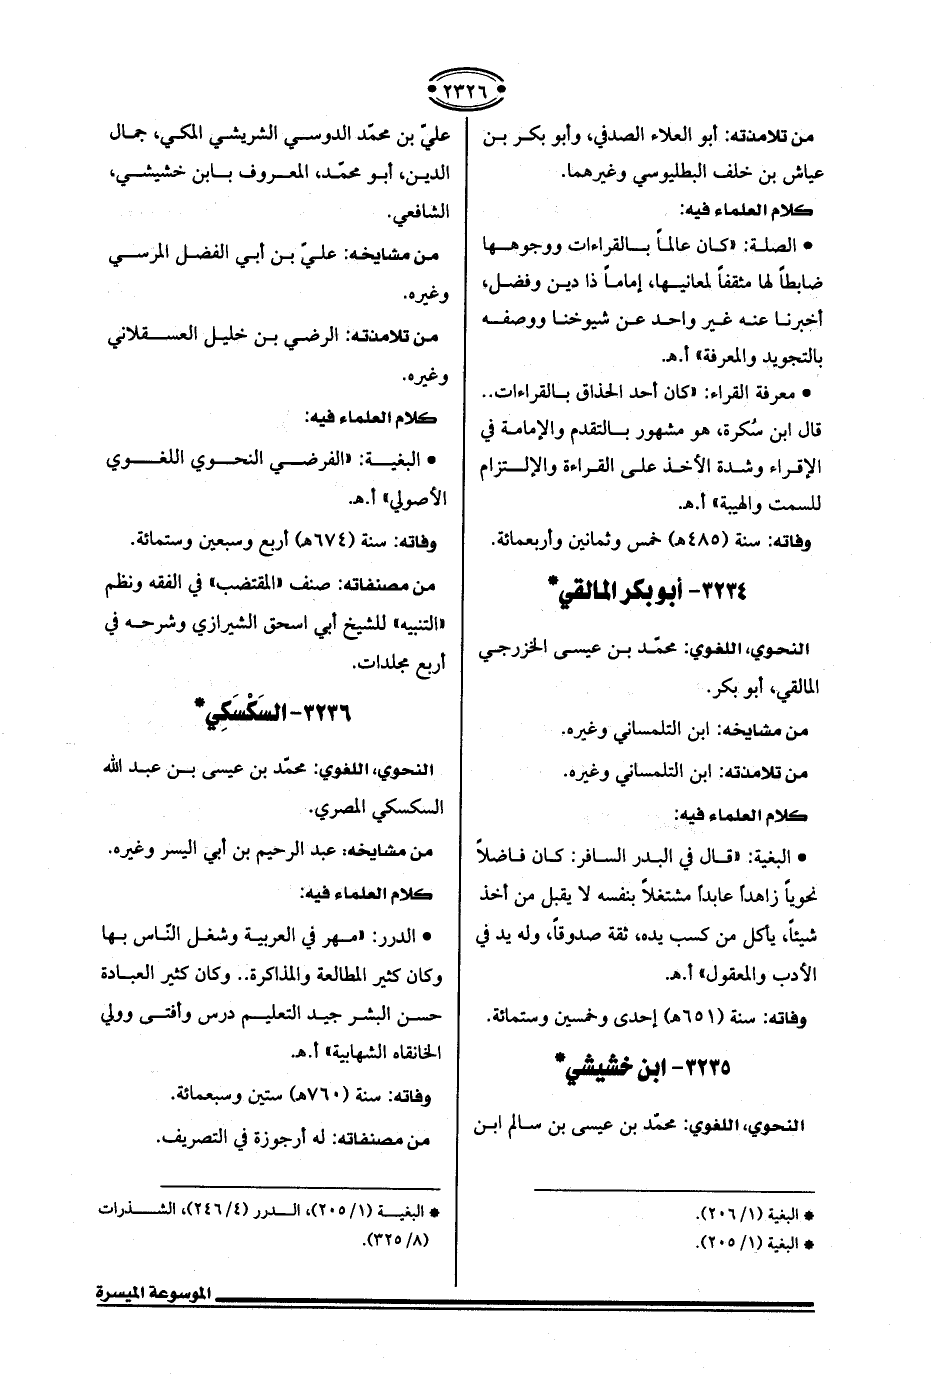 ٢٣٢٦
من تلامذته: أبو العلاء الصدفي، وأبو بكر بن
عياش بن خلف البطليوسي وغيرهما.
كلام العلماء فيه:
• الصلة: «كان عالماً بالقراءات ووجوهها
ضابطاً لها مثقفاً لمعانيها، إماماً ذا دين وفضل،
أخبرنا عنه غير واحد عن شيوخنا ووصفه
بالتجويد والمعرفة» أ.هـ.
• معرفة القراء: «كان أحد الحذاق بالقراءات..
قال ابن سُكرة، هو مشهور بالتقدم والإمامة في
الإقراء وشدة الأخذ على القراءة والإلتزام
للسمت والهيبة» أ.هـ.
وفاته: سنة (٤٨٥هـ) خمس وثمانين وأربعمائة.
٣٢٣٤- أبو بكر المالقي*
النحوي، اللغوي: محمّد بن عيسى الخزرجي
المالقي، أبو بكر.
من مشايخه: ابن التلمساني وغيره.
من تلامذته: ابن التلمساني وغيره.
كلام العلماء فيه:
• البغية: «قال في البدر السافر: كان فاضلاً
نحوياً زاهداً عابداً مشتغلاً بنفسه لا يقبل من أخذ
شيئاً، يأكل من كسب يده، ثقة صدوقاً، وله يد في
الأدب والمعقول» أ.هـ.
وفاته: سنة (٦٥١هـ) إحدى وخمسين وستمائة.
٣٢٣٥- ابن خشيشي*
النحوي، اللغوي: محمّد بن عيسى بن سالم ابن
* البغية (١/ ٢٠٦).
* البغية (١/ ٢٠٥).
عليّ بن محمّد الدوسي الشريشي المكي، جمال
الدين، أبو محمّد، المعروف بابن خشيشي،
الشافعي.
من مشايخه: عليّ بن أبي الفضل المرسي
وغيره.
من تلامذته: الرضي بن خليل العسقلاني
وغيره.
كلام العلماء فيه:
• البغية: «الفرضي النحوي اللغوي
الأصولي» أ.هـ.
وفاته: سنة (٦٧٤هـ) أربع وسبعين وستمائة.
من مصنفاته: صنف «المقتضب» في الفقه ونظم
«التنبيه» للشيخ أبي اسحق الشيرازي وشرحه في
أربع مجلدات.
٣٢٣٦- السَكْسَكِي*
النحوي، اللغوي: محمّد بن عيسى بن عبد الله
السكسكي المصري.
من مشايخه: عبد الرحيم بن أبي اليسر وغيره.
كلام العلماء فيه:
• الدرر: «مهر في العربية وشغل النّاس بها
وكان كثير المطالعة والمذاكرة.. وكان كثير العبادة
حسن البشر جيد التعليم درس وأفتى وولي
الخانقاه الشهابية» أ.هـ.
وفاته: سنة (٧٦٠هـ) ستين وسبعمائة.
من مصنفاته: له أرجوزة في التصريف.
* البغية (١/ ٢٠٥)، الدرر (٤/ ٢٤٦)، الشذرات
(٨/ ٣٢٥).
الموسوعة الميسرة